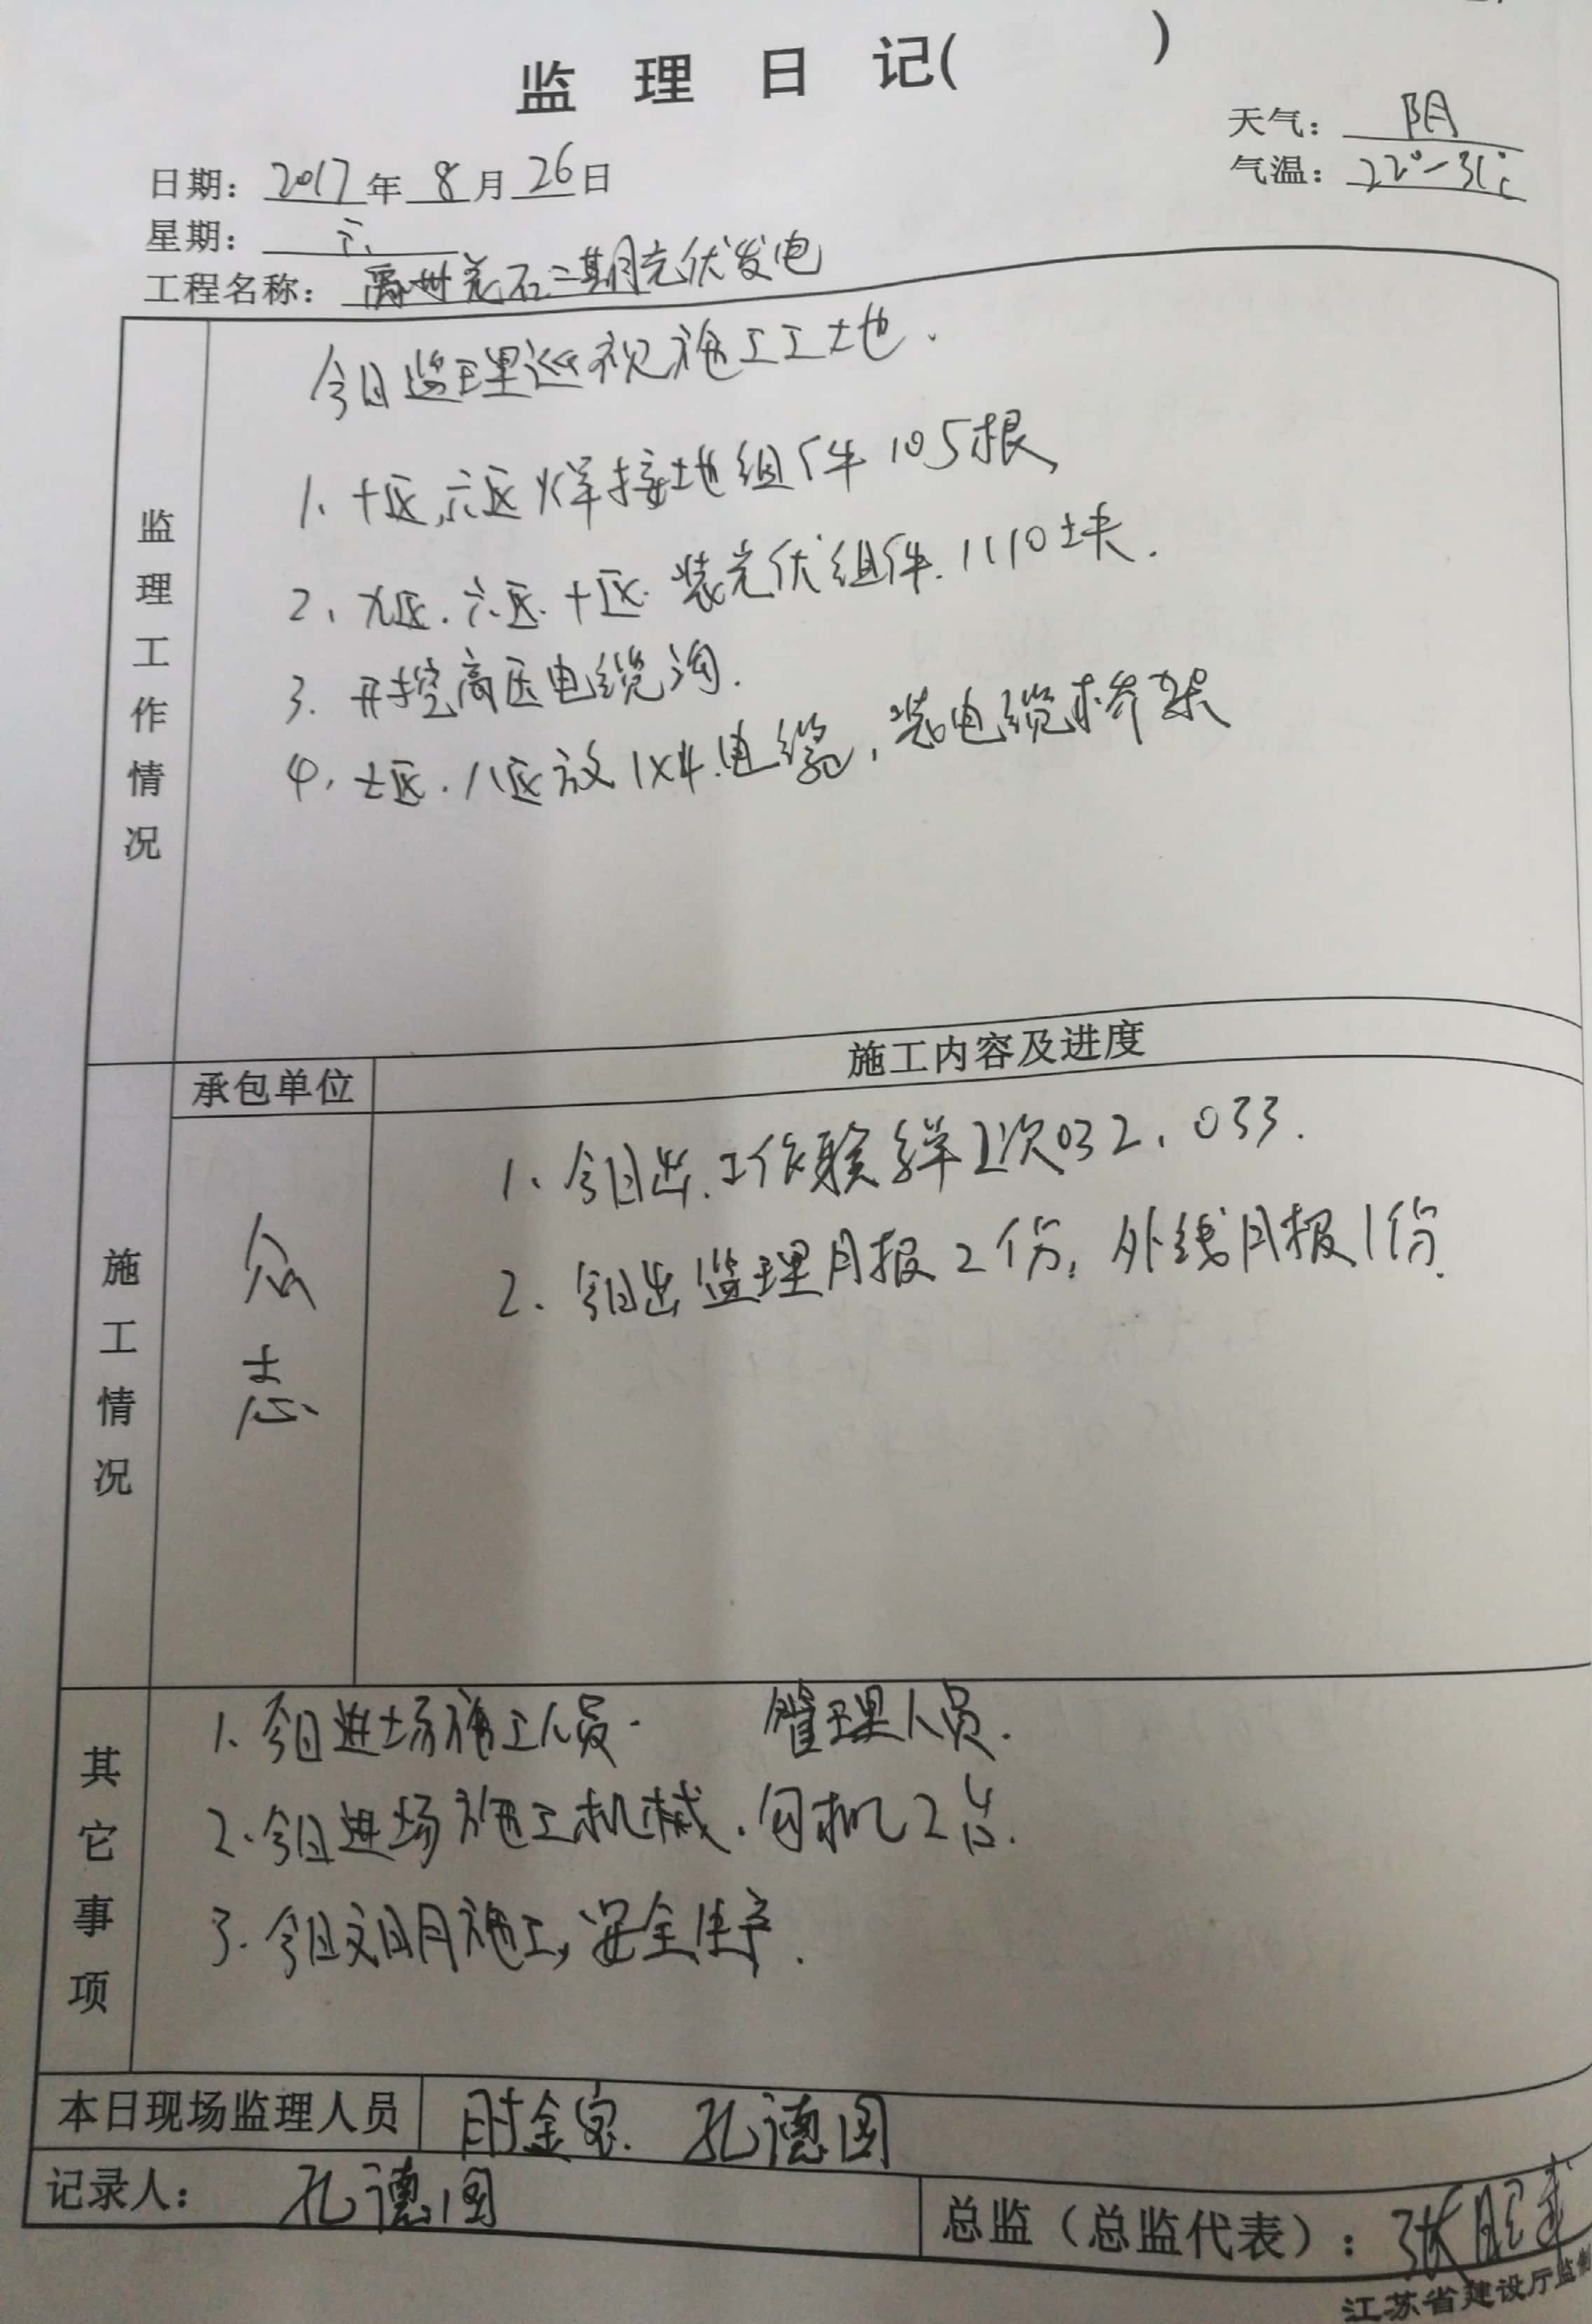 监 理 日 记( )
天气: 阴
气温: 22°-31℃
日期: 2017年 8 月 26 日
星期: 六
工程名称: 禹州 石二期光伏发电
监理工作情况
今日监理巡视施工工地.
1、十区,六区焊接地组件105根,
2、九区.六区.十区.装光伏组件.1110块.
3. 开挖高压电缆沟.
4、七区.八区放1X4电缆,装电缆桥架
施工情况
承包单位
施工内容及进度
众志
1、今日出.工作联系单2次032、033.
2、今日出监理月报2份,外线月报1份.
其它事项
1、今日进场施工人员. 管理人员.
2.今日进场施工机械.勾机2台.
3.今日文明施工,安全生产.
本日现场监理人员 时金宝. 孔德国
记录人: 孔德国
总监(总监代表): 张
江苏省建设厅监制